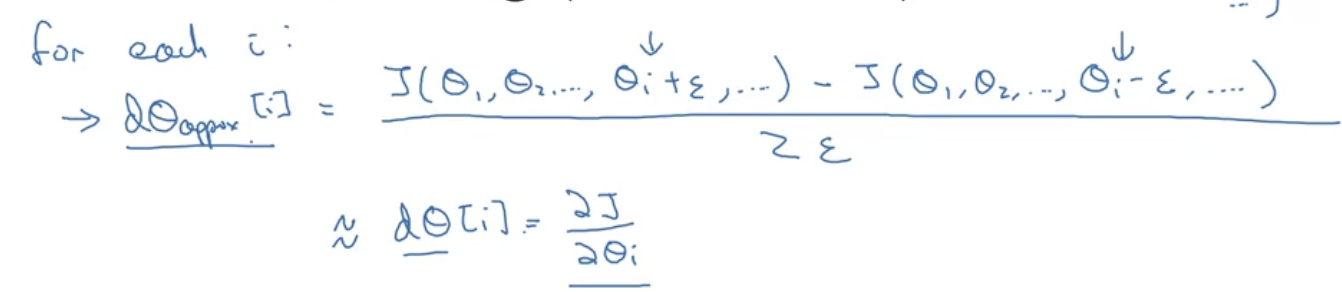 for each i:
→ dθapprox[i] = J(θ₁,θ₂,..., θᵢ+ε,...) - J(θ₁,θ₂,..., θᵢ-ε,....)
2ε
≈ dθ[i] = ∂J
∂θᵢ